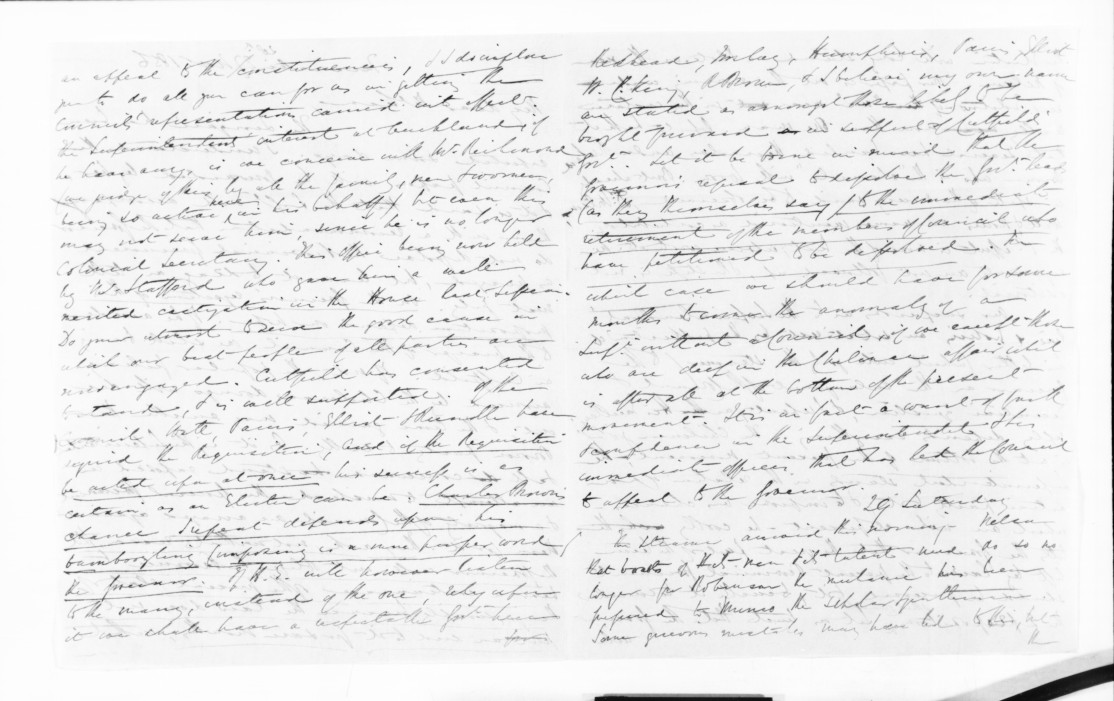 an appeal to the Constituencies, I do implore
you to do all you can for us in getting the
Council's representation carried into effect.
The Superintendent's interest at Auckland if
he has any, is we conceive with Mr Richmond
we judge of this by all the family, men & women,
being so active in his behalf, but even this
may not serve him, since he is no longer
Colonial Secretary. This office being now held
by Mr Stafford who gave him a well
merited castigation in the House last Session.
Do your utmost to serve the good cause in
which our best people of all parties are
now engaged. Cutfield has consented
to stand, & is well supported. Of the
Council Elliot & Rundle have
signed the Requisition, and if the Requisition
be acted upon at once his success is as
certain as an Election can be. Charles Brown's
chance I repeat depends upon his
bamboozling (imposing is a more proper word)
the Governor. If H.E. will however listen
to the many, instead of the one, rely upon
it we shall have a respectable Govt here
Redhead, Humphries, Elliot
W. C. King, A Brown, & I believe my own name
are stated as amongst those likely to be
brought forward in support of Cutfield's
Govt. Let it be borne in mind that the
Governor's refusal to dissolve the will lead
(as they themselves say) to the immediate
retirement of the members of Council who
have petitioned to be dissolved. In
which case we should have for some
months to come the anomaly of a
Supt without a Council, if we except those
who are deep in the Chilman affair which
is after all at the bottom of the present
movement. It is in fact a want of
confidence in the Superintendent & his
immediate officers that has led the Council
to appeal to the Governor.
29 Saturday
The Steamer arrived this morning. Nelson
that boasts of Hit-men need do so no
longer for Robinson the mechanic has been
preferred to Munro the scholar & gentleman
Some grievous mistakes may have led to this, but
the